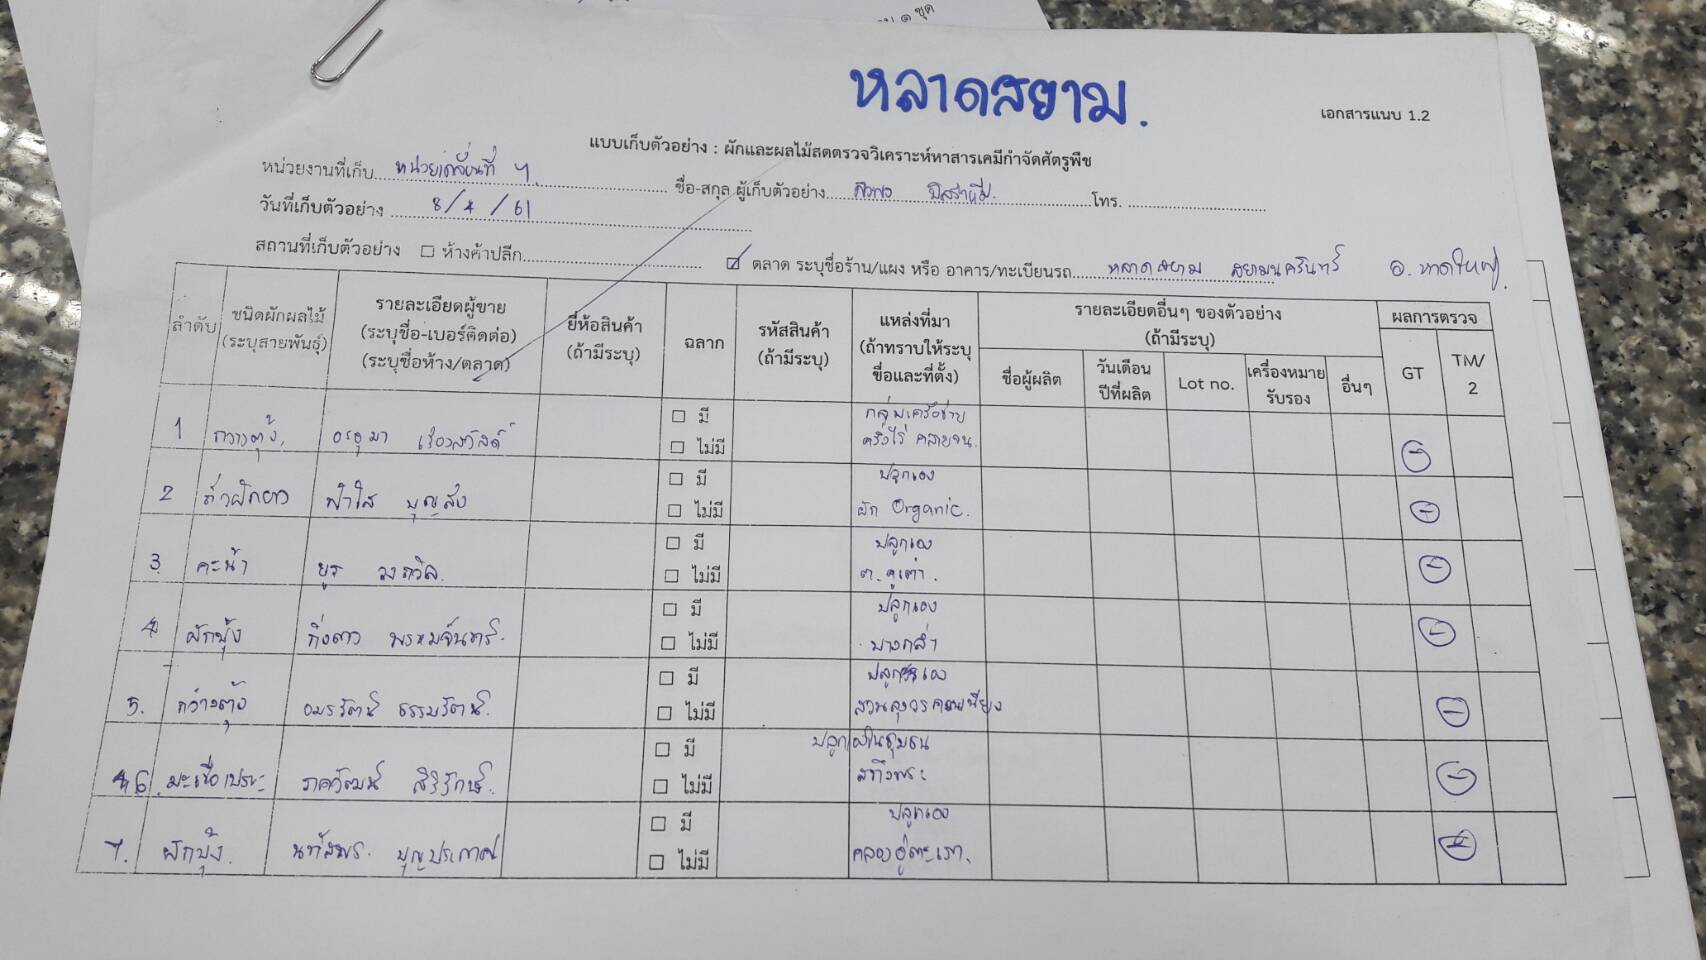 หลาดสยาม.
เอกสารแนบ 1.2
แบบเก็บตัวอย่าง : ผักและผลไม้สดตรวจวิเคราะห์หาสารเคมีกำจัดศัตรูพืช
หน่วยงานที่เก็บ หน่วยเคลื่อนที่ ชื่อ-สกุล ผู้เก็บตัวอย่าง โทร.
วันที่เก็บตัวอย่าง 8/4/61
สถานที่เก็บตัวอย่าง ☐ ห้างค้าปลีก ☑ ตลาด ระบุชื่อร้าน/แผง หรือ อาคาร/ทะเบียนรถ หลาดสยาม สยามนครินทร์ อ. หาดใหญ่
ลำดับ ชนิดผักผลไม้ (ระบุสายพันธุ์) รายละเอียดผู้ขาย (ระบุชื่อ-เบอร์ติดต่อ) (ระบุชื่อห้าง/ตลาด) ยี่ห้อสินค้า (ถ้ามีระบุ) ฉลาก รหัสสินค้า (ถ้ามีระบุ) แหล่งที่มา (ถ้าทราบให้ระบุ ชื่อและที่ตั้ง) รายละเอียดอื่นๆ ของตัวอย่าง (ถ้ามีระบุ) ผลการตรวจ
ชื่อผู้ผลิต วันเดือน ปีที่ผลิต Lot no. เครื่องหมาย รับรอง อื่นๆ GT TM/2
1 กวางตุ้ง. อรอุมา ☐ มี กลุ่มเครือข่าย
☐ ไม่มี
2 ถั่วฝักยาว ฟ้าใส บุญส่ง ☐ มี ปลูกเอง
☐ ไม่มี ผัก Organic.
3. คะน้า ☐ มี ปลูกเอง
☐ ไม่มี ต. คูเต่า.
4 ผักบุ้ง กิ่งดาว พรหมจันทร์. ☐ มี ปลูกเอง
☐ ไม่มี บางกล่ำ
5. กวางตุ้ง อมรรัตน์ ธรรมรัตน์. ☐ มี ปลูกเอง
☐ ไม่มี
6. มะเขือเปราะ ☐ มี ปลูกเองในชุมชน
☐ ไม่มี สทิงพระ
7. ผักบุ้ง. ☐ มี ปลูกเอง
☐ ไม่มี คลองอู่ตะเภา.